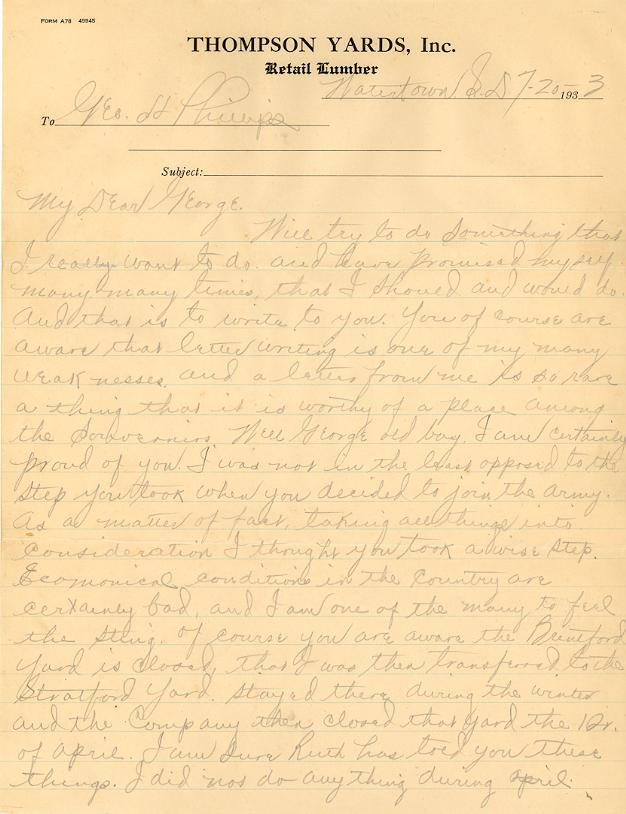 FORM A78 49945
THOMPSON YARDS, Inc.
Retail Lumber
Watertown S.D 7-20-1933
To Geo. H Phillips
Subject:
My Dear George.
Will try to do something that
I really want to do. and have promised myself
many many times, that I should and would do.
And that is to write to you. You of course are
aware that letter writing is one of my many
weaknesses. and a letter from me is so rare
a thing that it is worthy of a place among
the Souveniers. Well George old boy, I am certainly
proud of you. I was not in the least opposed to the
step you took when you decided to join the army.
As a matter of fact, taking all things into
consideration I thought you took a wise step.
Ecomonical conditions in the country are
certainly bad, and I am one of the many to feel
the sting. Of course you are aware the Brentford
Yard is closed, that I was then transferred to the
Stratford Yard. Stayed there during the winter
and the Company then closed that yard the 1st.
of April. I am sure Ruth has told you these
things. I did not do anything during April